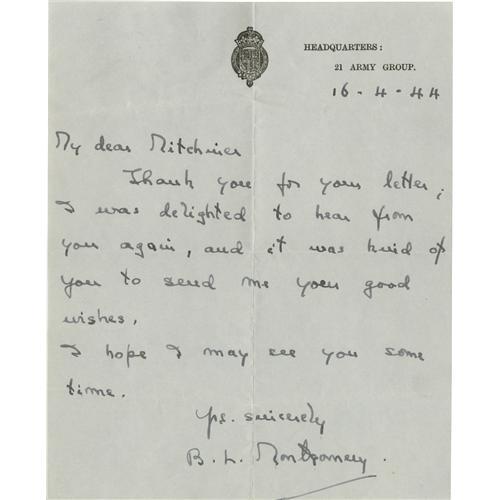 HEADQUARTERS:
21 ARMY GROUP.
16-4-44
My dear Mitchiner
Thank you for your letter;
I was delighted to hear from
you again, and it was kind of
you to send me your good
wishes.
I hope I may see you some
time.
Yrs. sincerely
B. L. Montgomery.